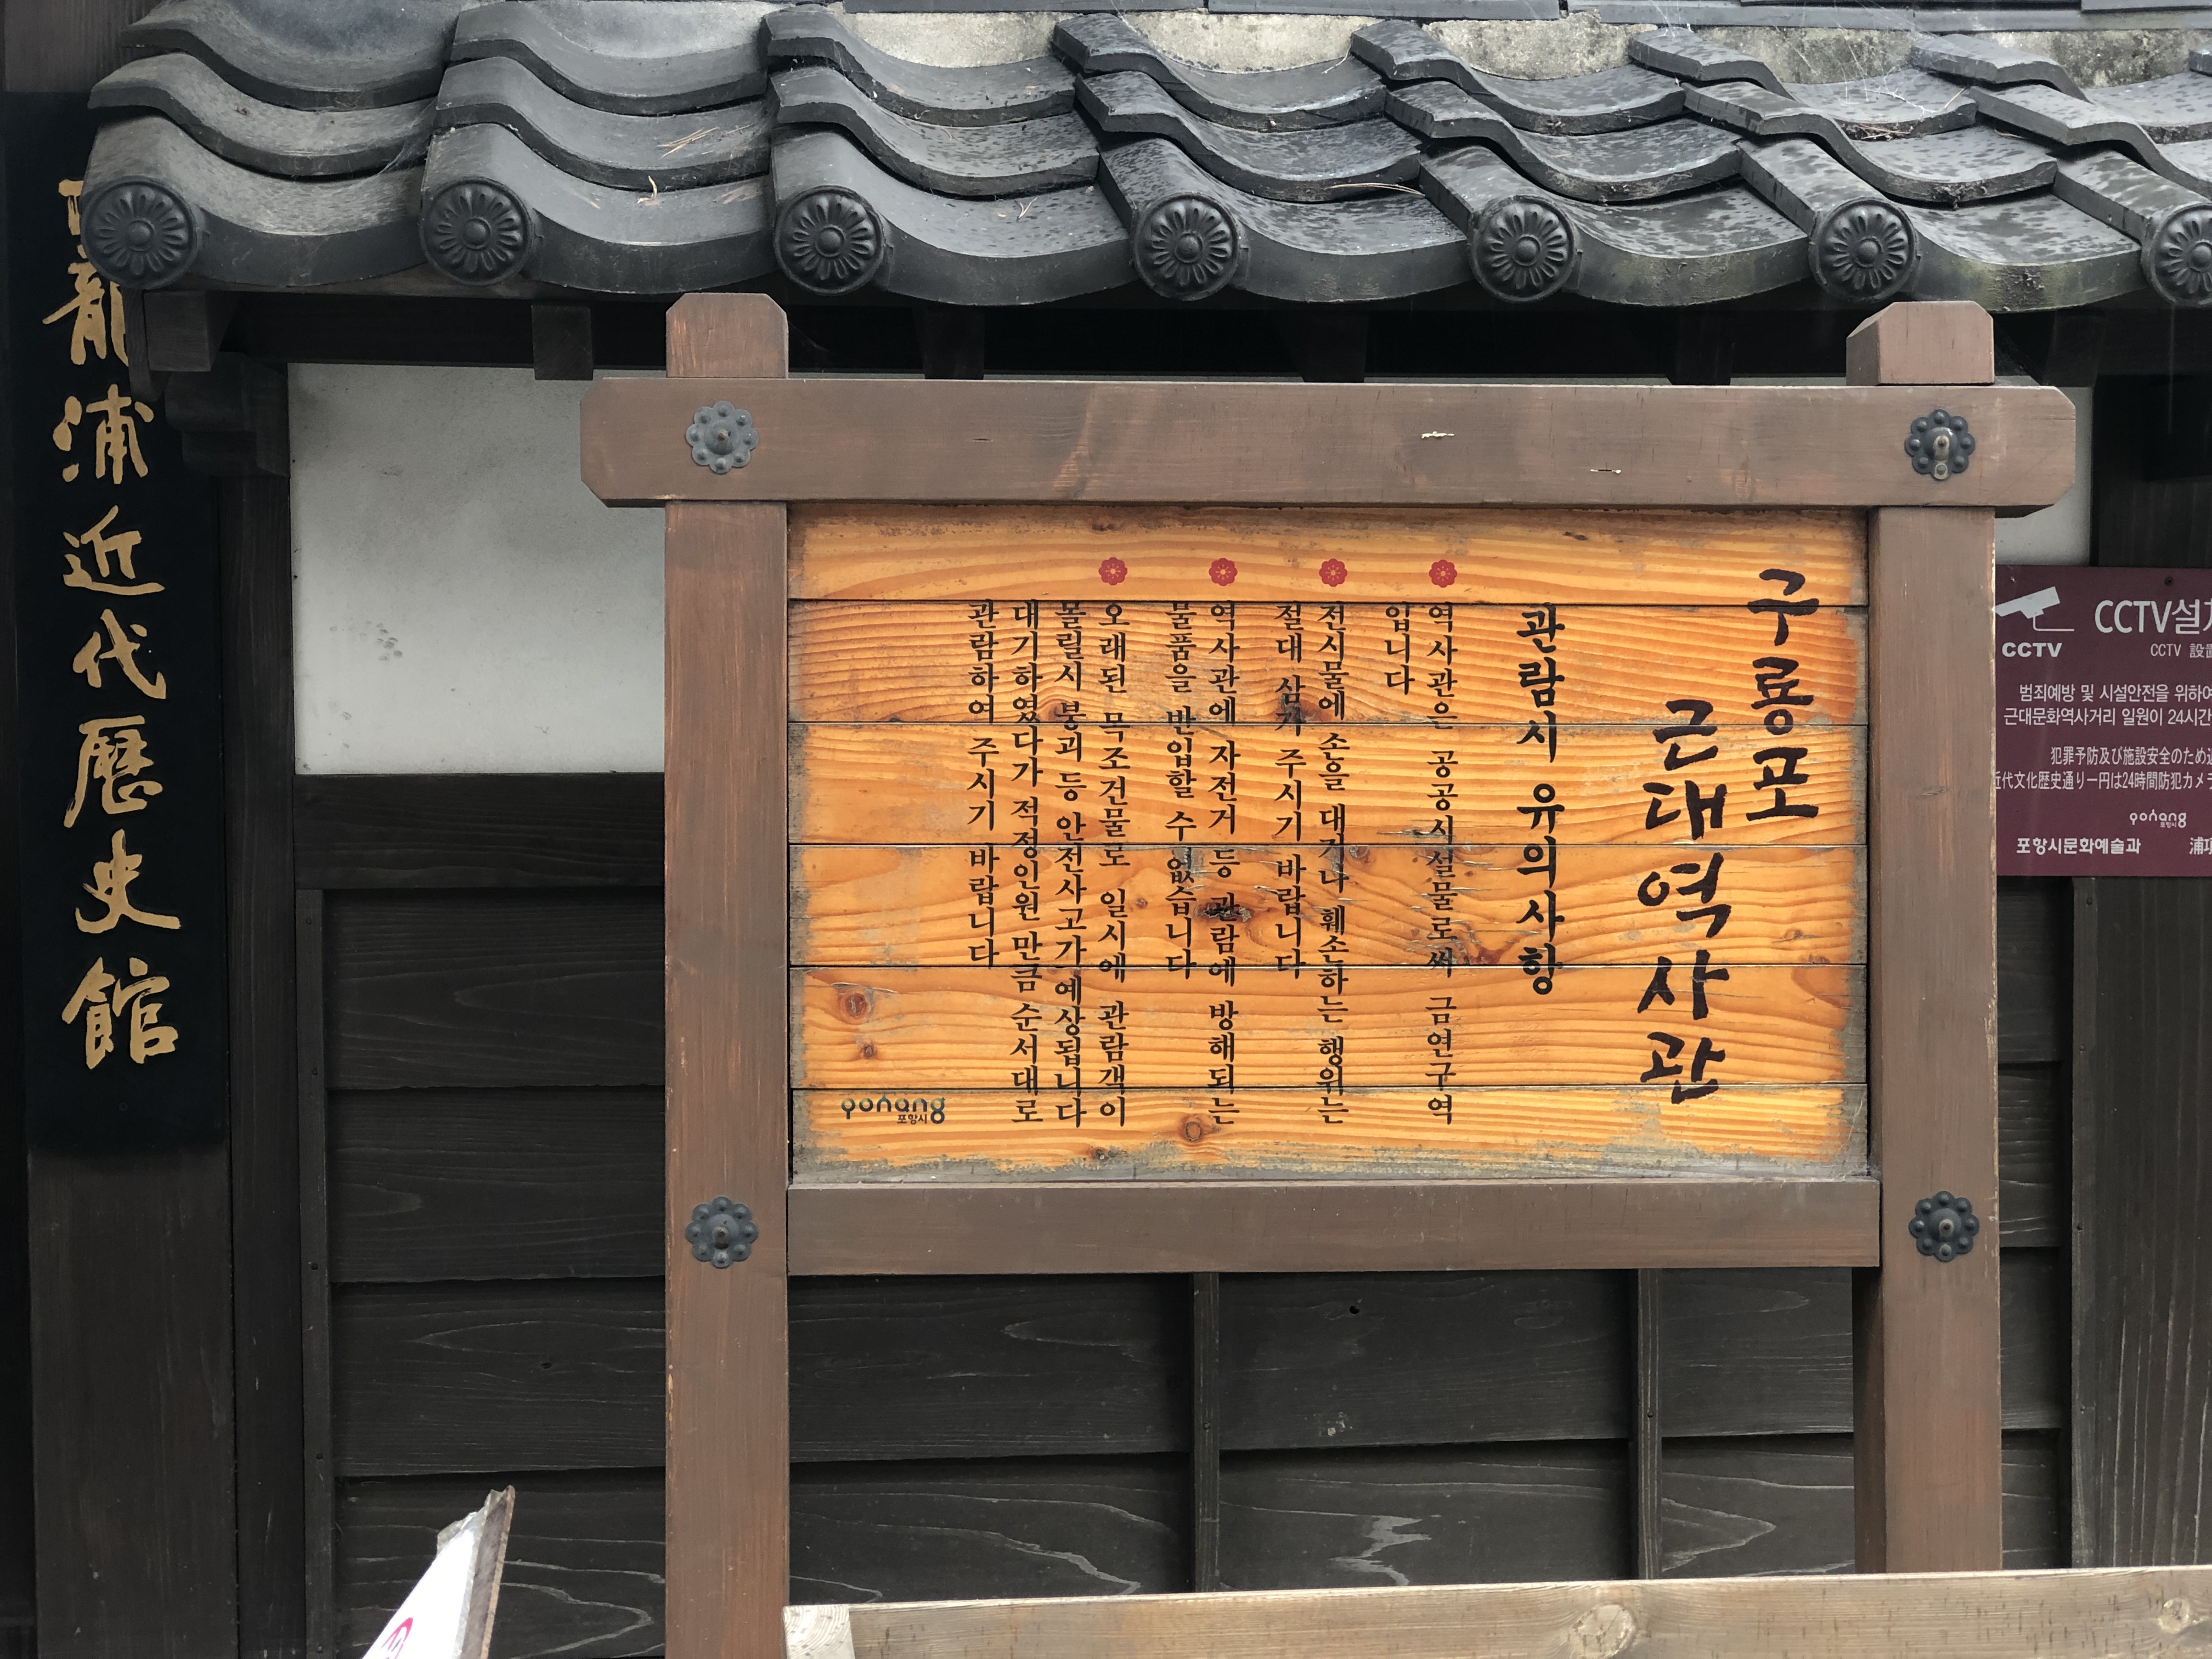 구룡포
근대역사관
관람시 유의사항
역사관은 공공시설물로써 금연구역
입니다
전시물에 손을 대거나 훼손하는 행위는
절대 삼가 주시기 바랍니다
역사관에 자전거 등 관람에 방해되는
물품을 반입할 수 없습니다
오래된 목조건물로 일시에 관람객이
몰릴시 붕괴 등 안전사고가 예상됩니다
대기하였다가 적정인원 만큼 순서대로
관람하여 주시기 바랍니다
pohang
포항시
龍浦近代歷史館
CCTV
CCTV설치
CCTV 設置
범죄예방 및 시설안전을 위하여
근대문화역사거리 일원이 24시간
犯罪予防及び施設安全のため
近代文化歴史通り一円は24時間防犯カメラ
pohang
포항시
포항시문화예술과
浦項